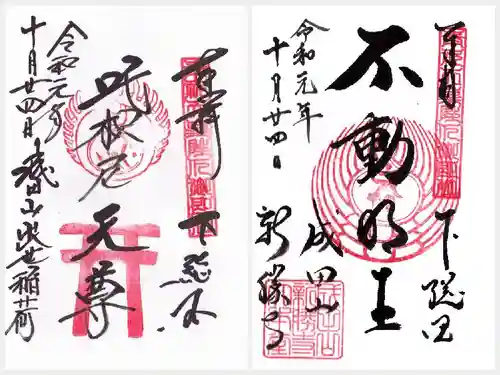 奉拝 下総国
吒枳尼天尊
令和元年
十月廿四日 成田山出世稲荷
奉拝 下総国
不動明王
令和元年
十月廿四日
成田山
新勝寺